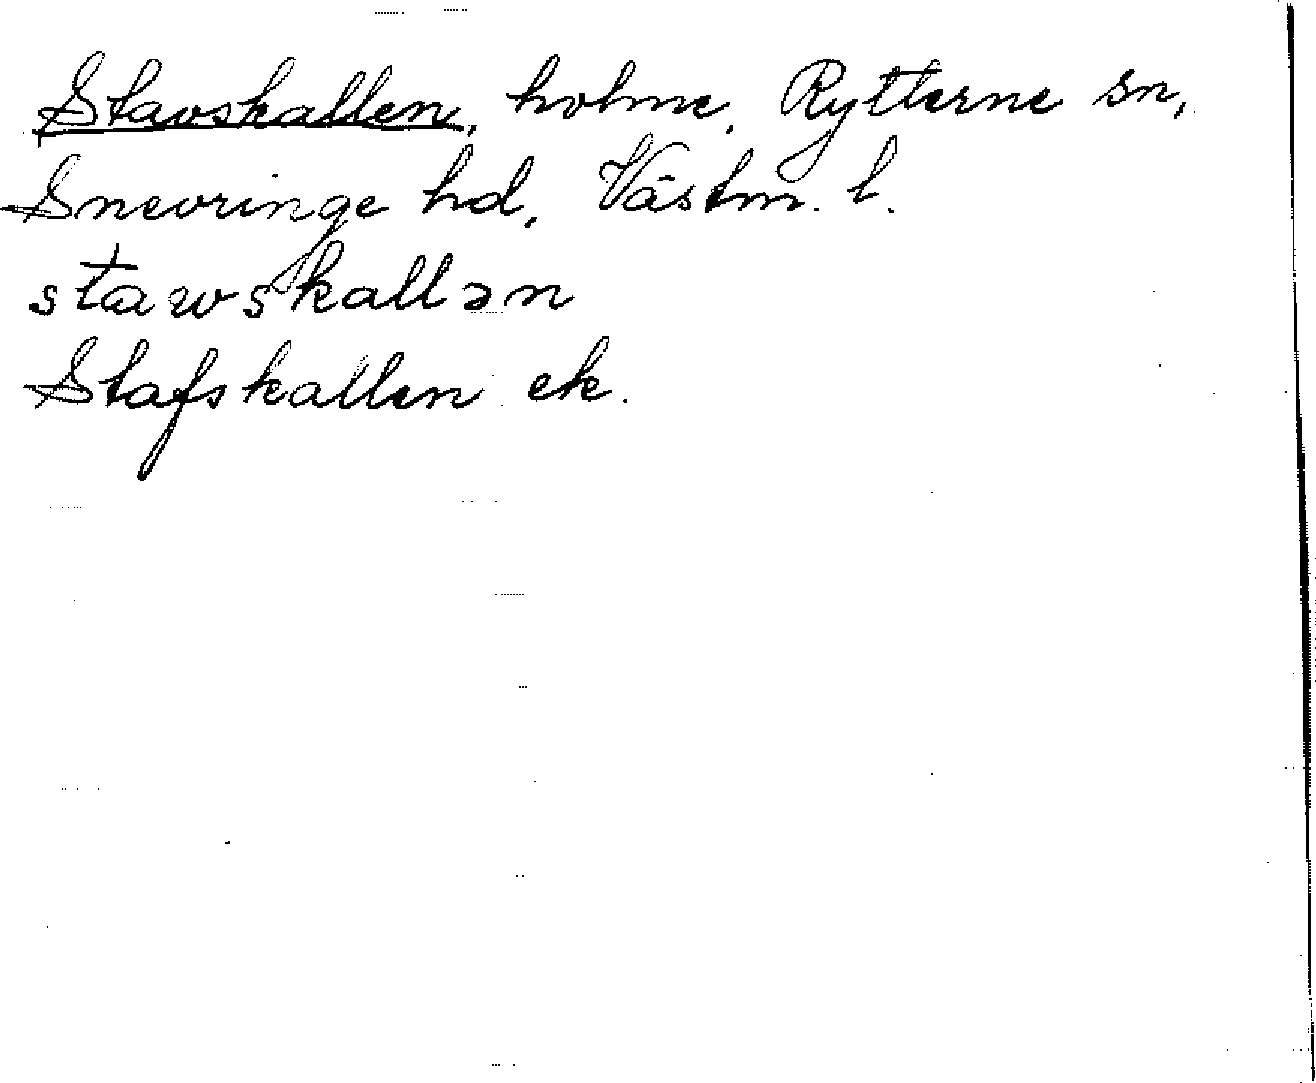 Stavskallen, holme, Rytterne sn,
Snevringe hd, Västm. l.
stawskallən
Stafskallen ek.